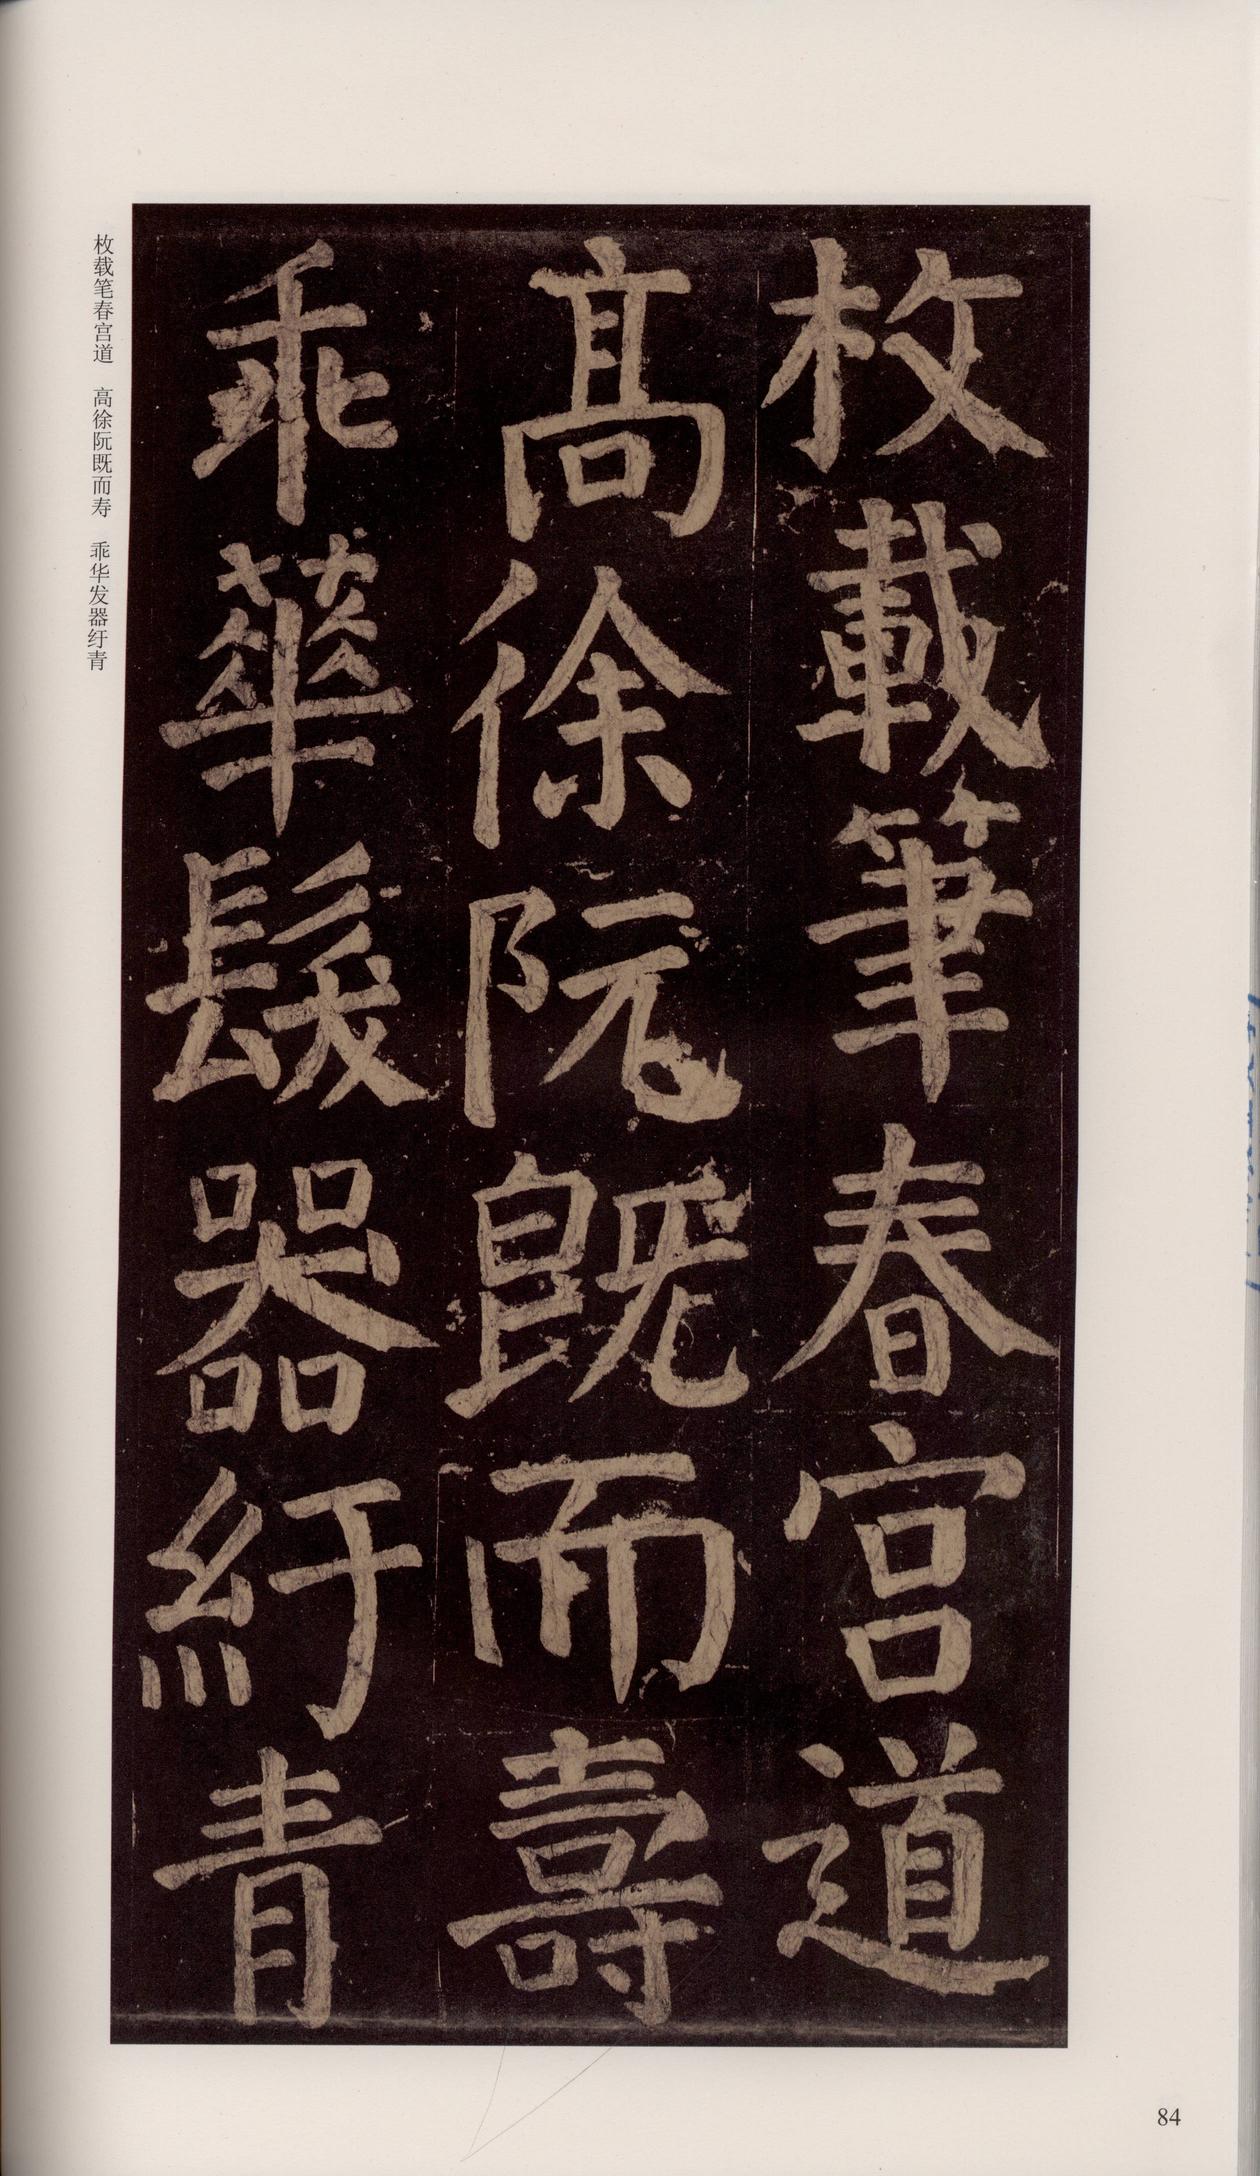 枚載筆春宮道
高徐阮既而壽
乖華髮器紆青
枚载笔春宫道 高徐阮既而寿 乖华发器纡青
84